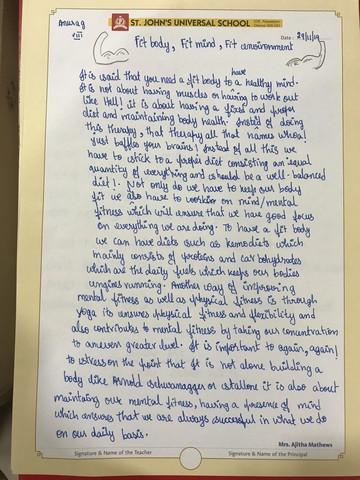 Anurag
VIII
ST. JOHN'S UNIVERSAL SCHOOL
Date: 29/11/19
Fit body, Fit mind, Fit environment
have
It is said that you need a fit body to a healthy mind.
It is not about having muscles or having to work out
like Hell! it is about having a fixed and proper
diet and maintaining body health. Instead of doing
this therapy, that therapy all that names whew!
just baffles your brains! Instead of all this we
have to stick to a proper diet consisting an equal
quantity of everything and should be a well-balanced
diet!. Not only do we have to keep our body
fit we also have to work on mind/mental
fitness which will ensure that we have good focus
on everything we are doing. To have a fit body
we can have diets such as kemodiets which
mainly consists of proteins and carbohydrates
which are the daily fuels which keeps our bodies
engines running. Another way of improving
mental fitness as well as physical fitness is through
yoga its ensures physical fitness and flexibility and
also contributes to mental fitness by taking our concentration
to aneven greater level. It is important to again, again!
to stress on the point that It is not alone building a
body like Arnold schwarnagger or stalone it is also about
maintaing our mental fitness, having a presence of mind
which ensures that we are always successful in what we do
on our daily basis.
Mrs. Ajitha Mathews
Signature & Name of the Teacher
Signature & Name of the Principal